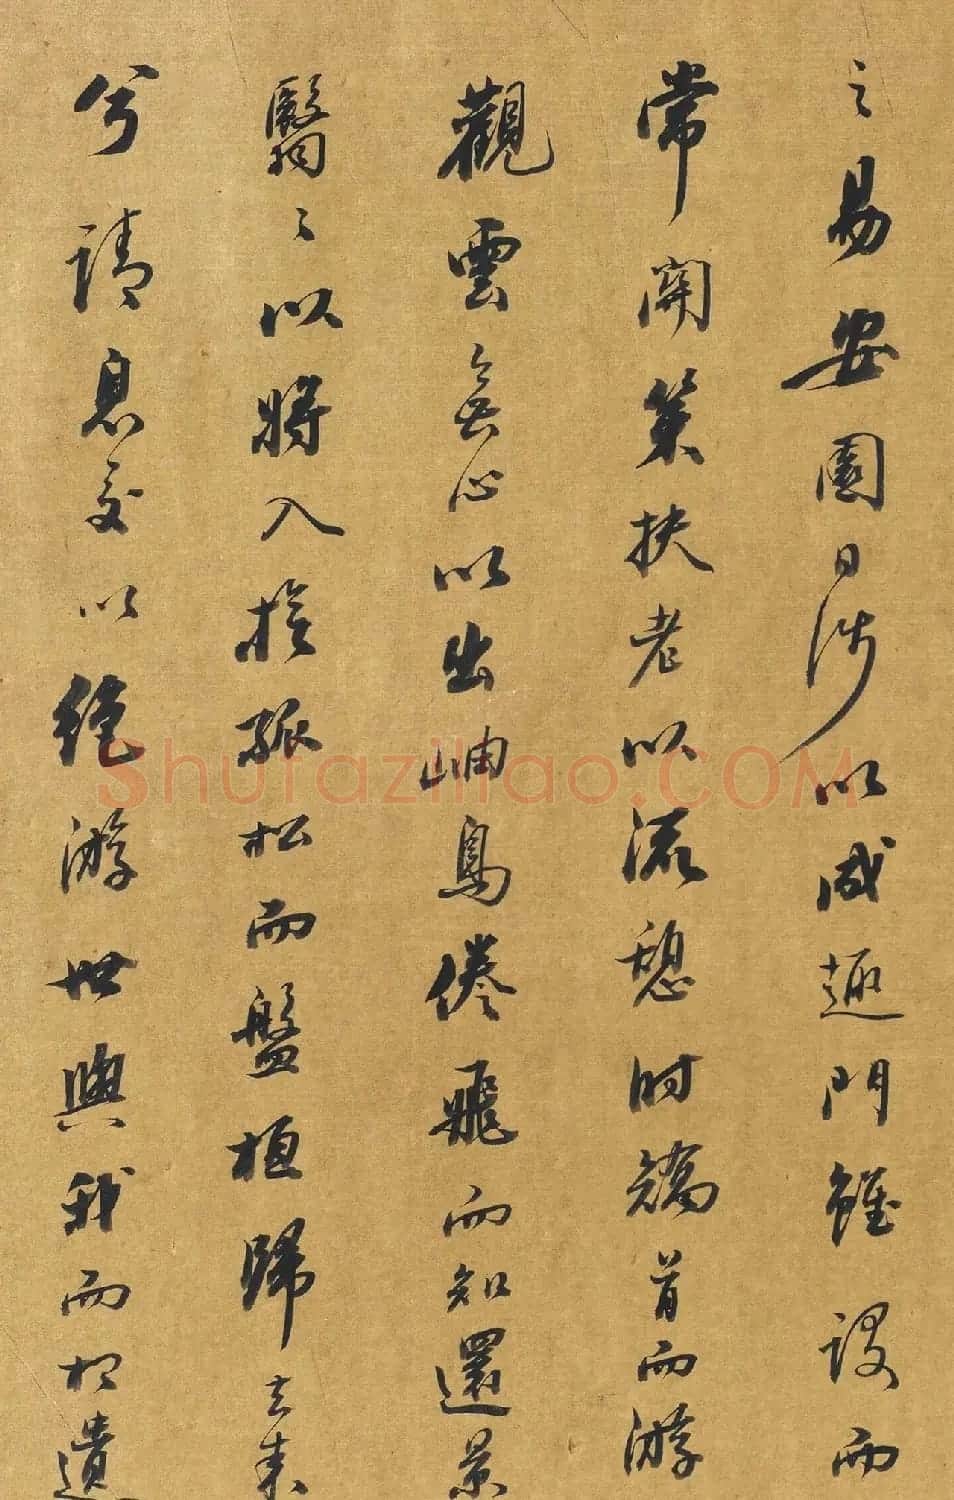 之易安園日涉以成趣門雖設而
常關策扶老以流憩時矯首而游
觀雲無心以出岫鳥倦飛而知還景
翳〻以將入撫孤松而盤桓歸去來
兮請息交以絕游世與我而相遺
Shufaziliao.COM